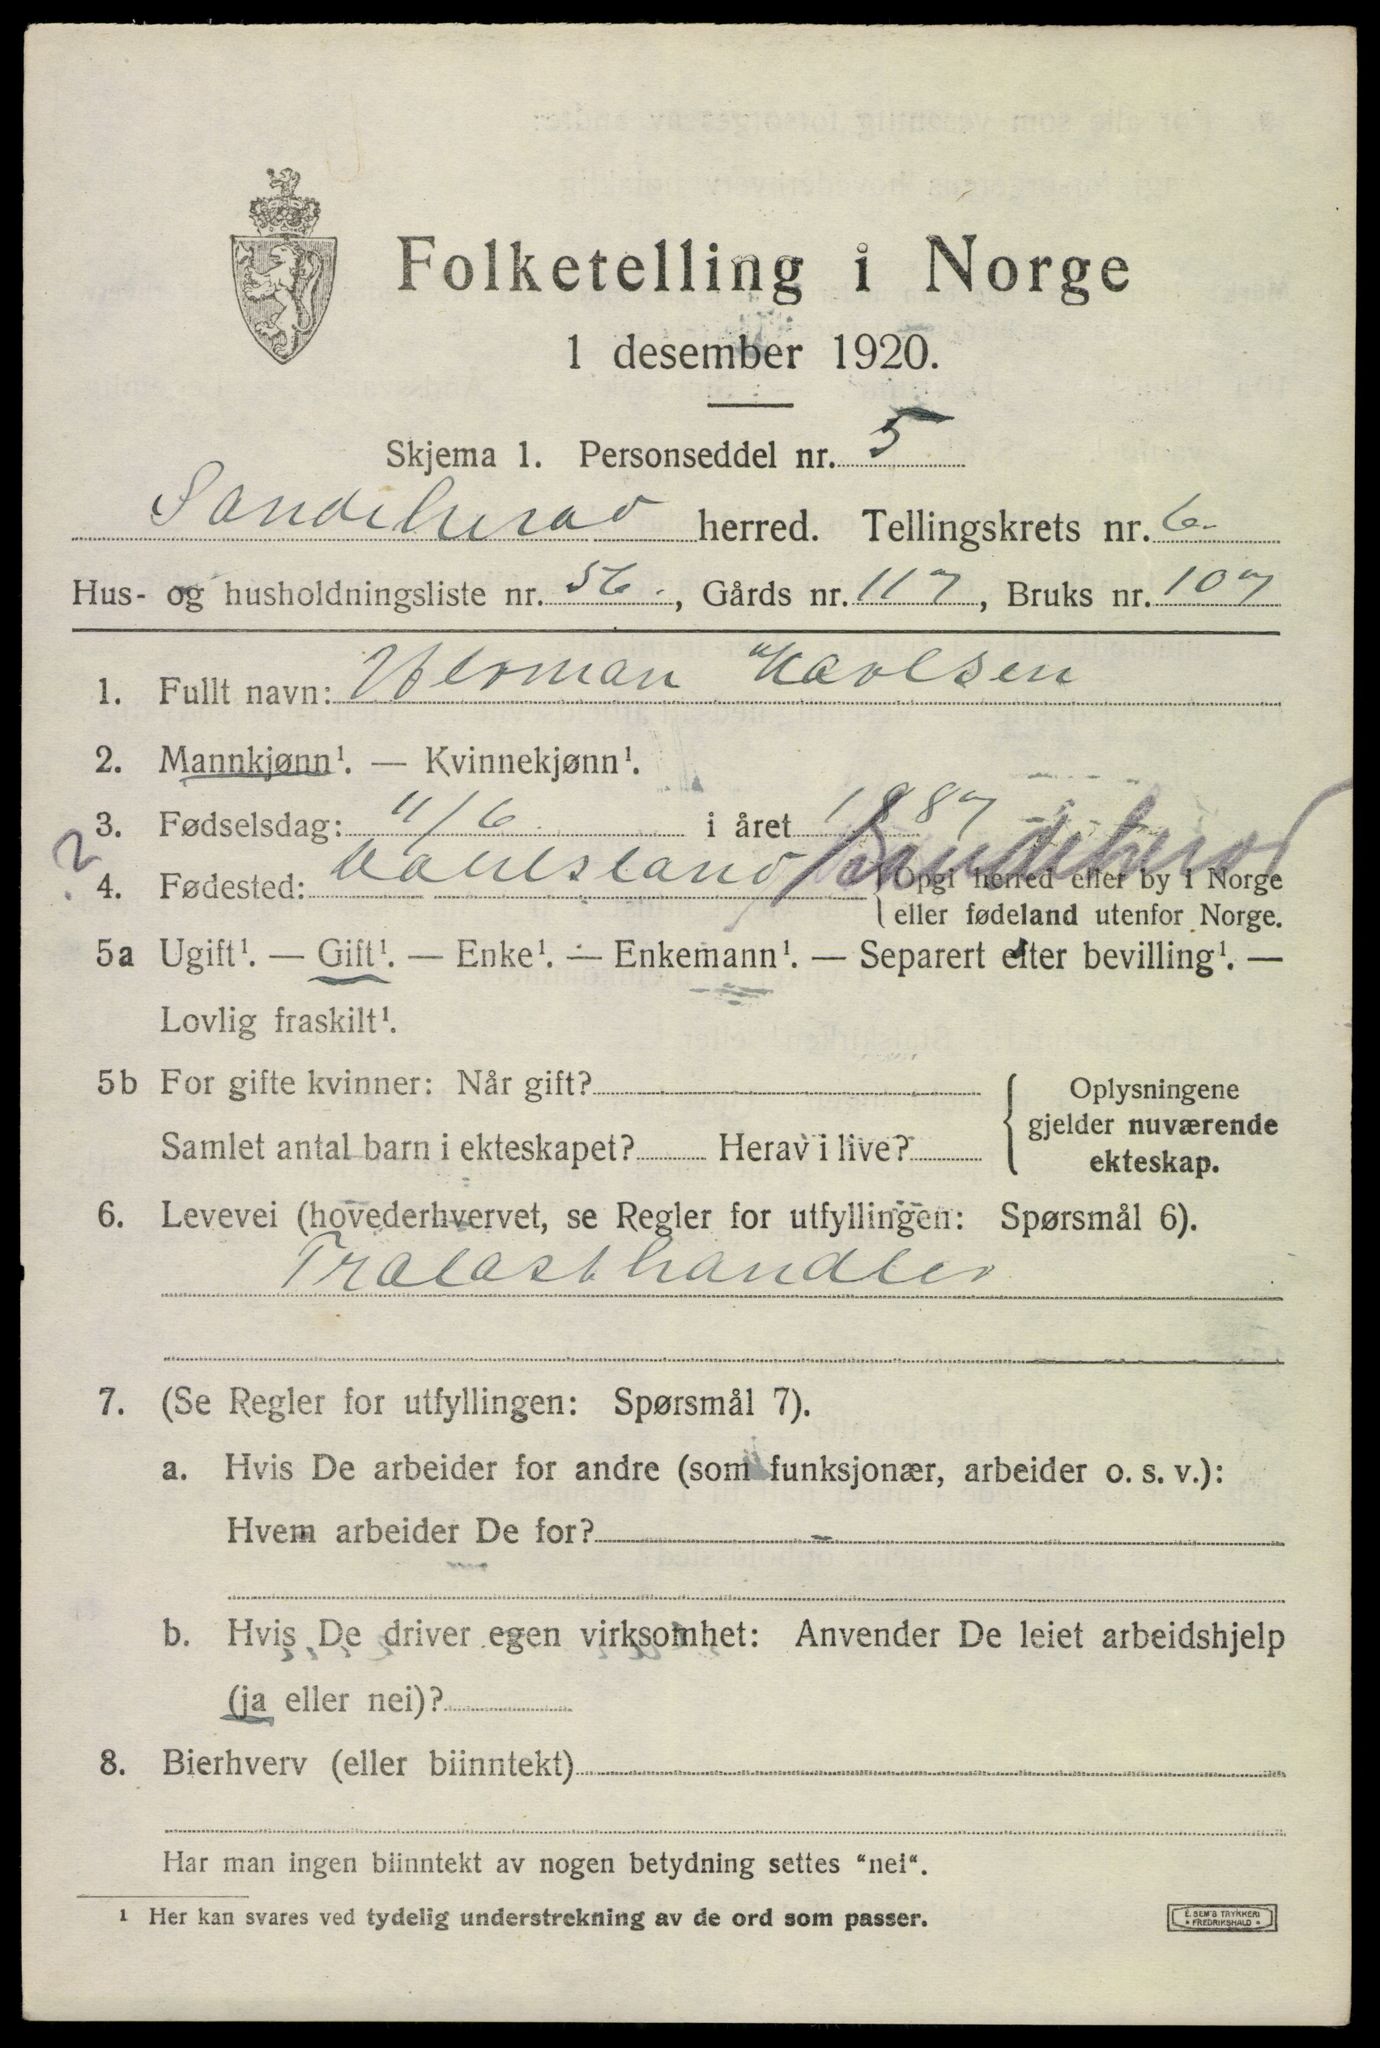 Folketelling i Norge
1 desember 1920.
Skjema 1. Personseddel nr. 5
Sandeherad herred. Tellingskrets nr. 6
Hus- og husholdningsliste nr. 56., Gårds nr. 117, Bruks nr. 107
1. Fullt navn: Herman Karlsen
2. Mannkjønn¹. — Kvinnekjønn¹.
3. Fødselsdag: 11/6 i året 1887
? 4. Fødested: Sandeherad {Opgi herred eller by i Norge
eller fødeland utenfor Norge.
5a Ugift¹. — Gift¹. — Enke¹. — Enkemann¹. — Separert efter bevilling¹. —
Lovlig fraskilt¹.
5b For gifte kvinner: Når gift?
Samlet antal barn i ekteskapet? Herav i live?
Oplysningene
gjelder nuværende
ekteskap.
6. Levevei (hovederhvervet, se Regler for utfyllingen: Spørsmål 6).
Trælasthandler
7. (Se Regler for utfyllingen: Spørsmål 7).
a. Hvis De arbeider for andre (som funksjonær, arbeider o. s. v.):
Hvem arbeider De for? –
b. Hvis De driver egen virksomhet: Anvender De leiet arbeidshjelp
(ja eller nei)?
8. Bierhverv (eller biinntekt)
Har man ingen biinntekt av nogen betydning settes "nei".
¹ Her kan svares ved tydelig understrekning av de ord som passer.
E. SEM'S TRYKKERI
* FREDRIKSHALD *